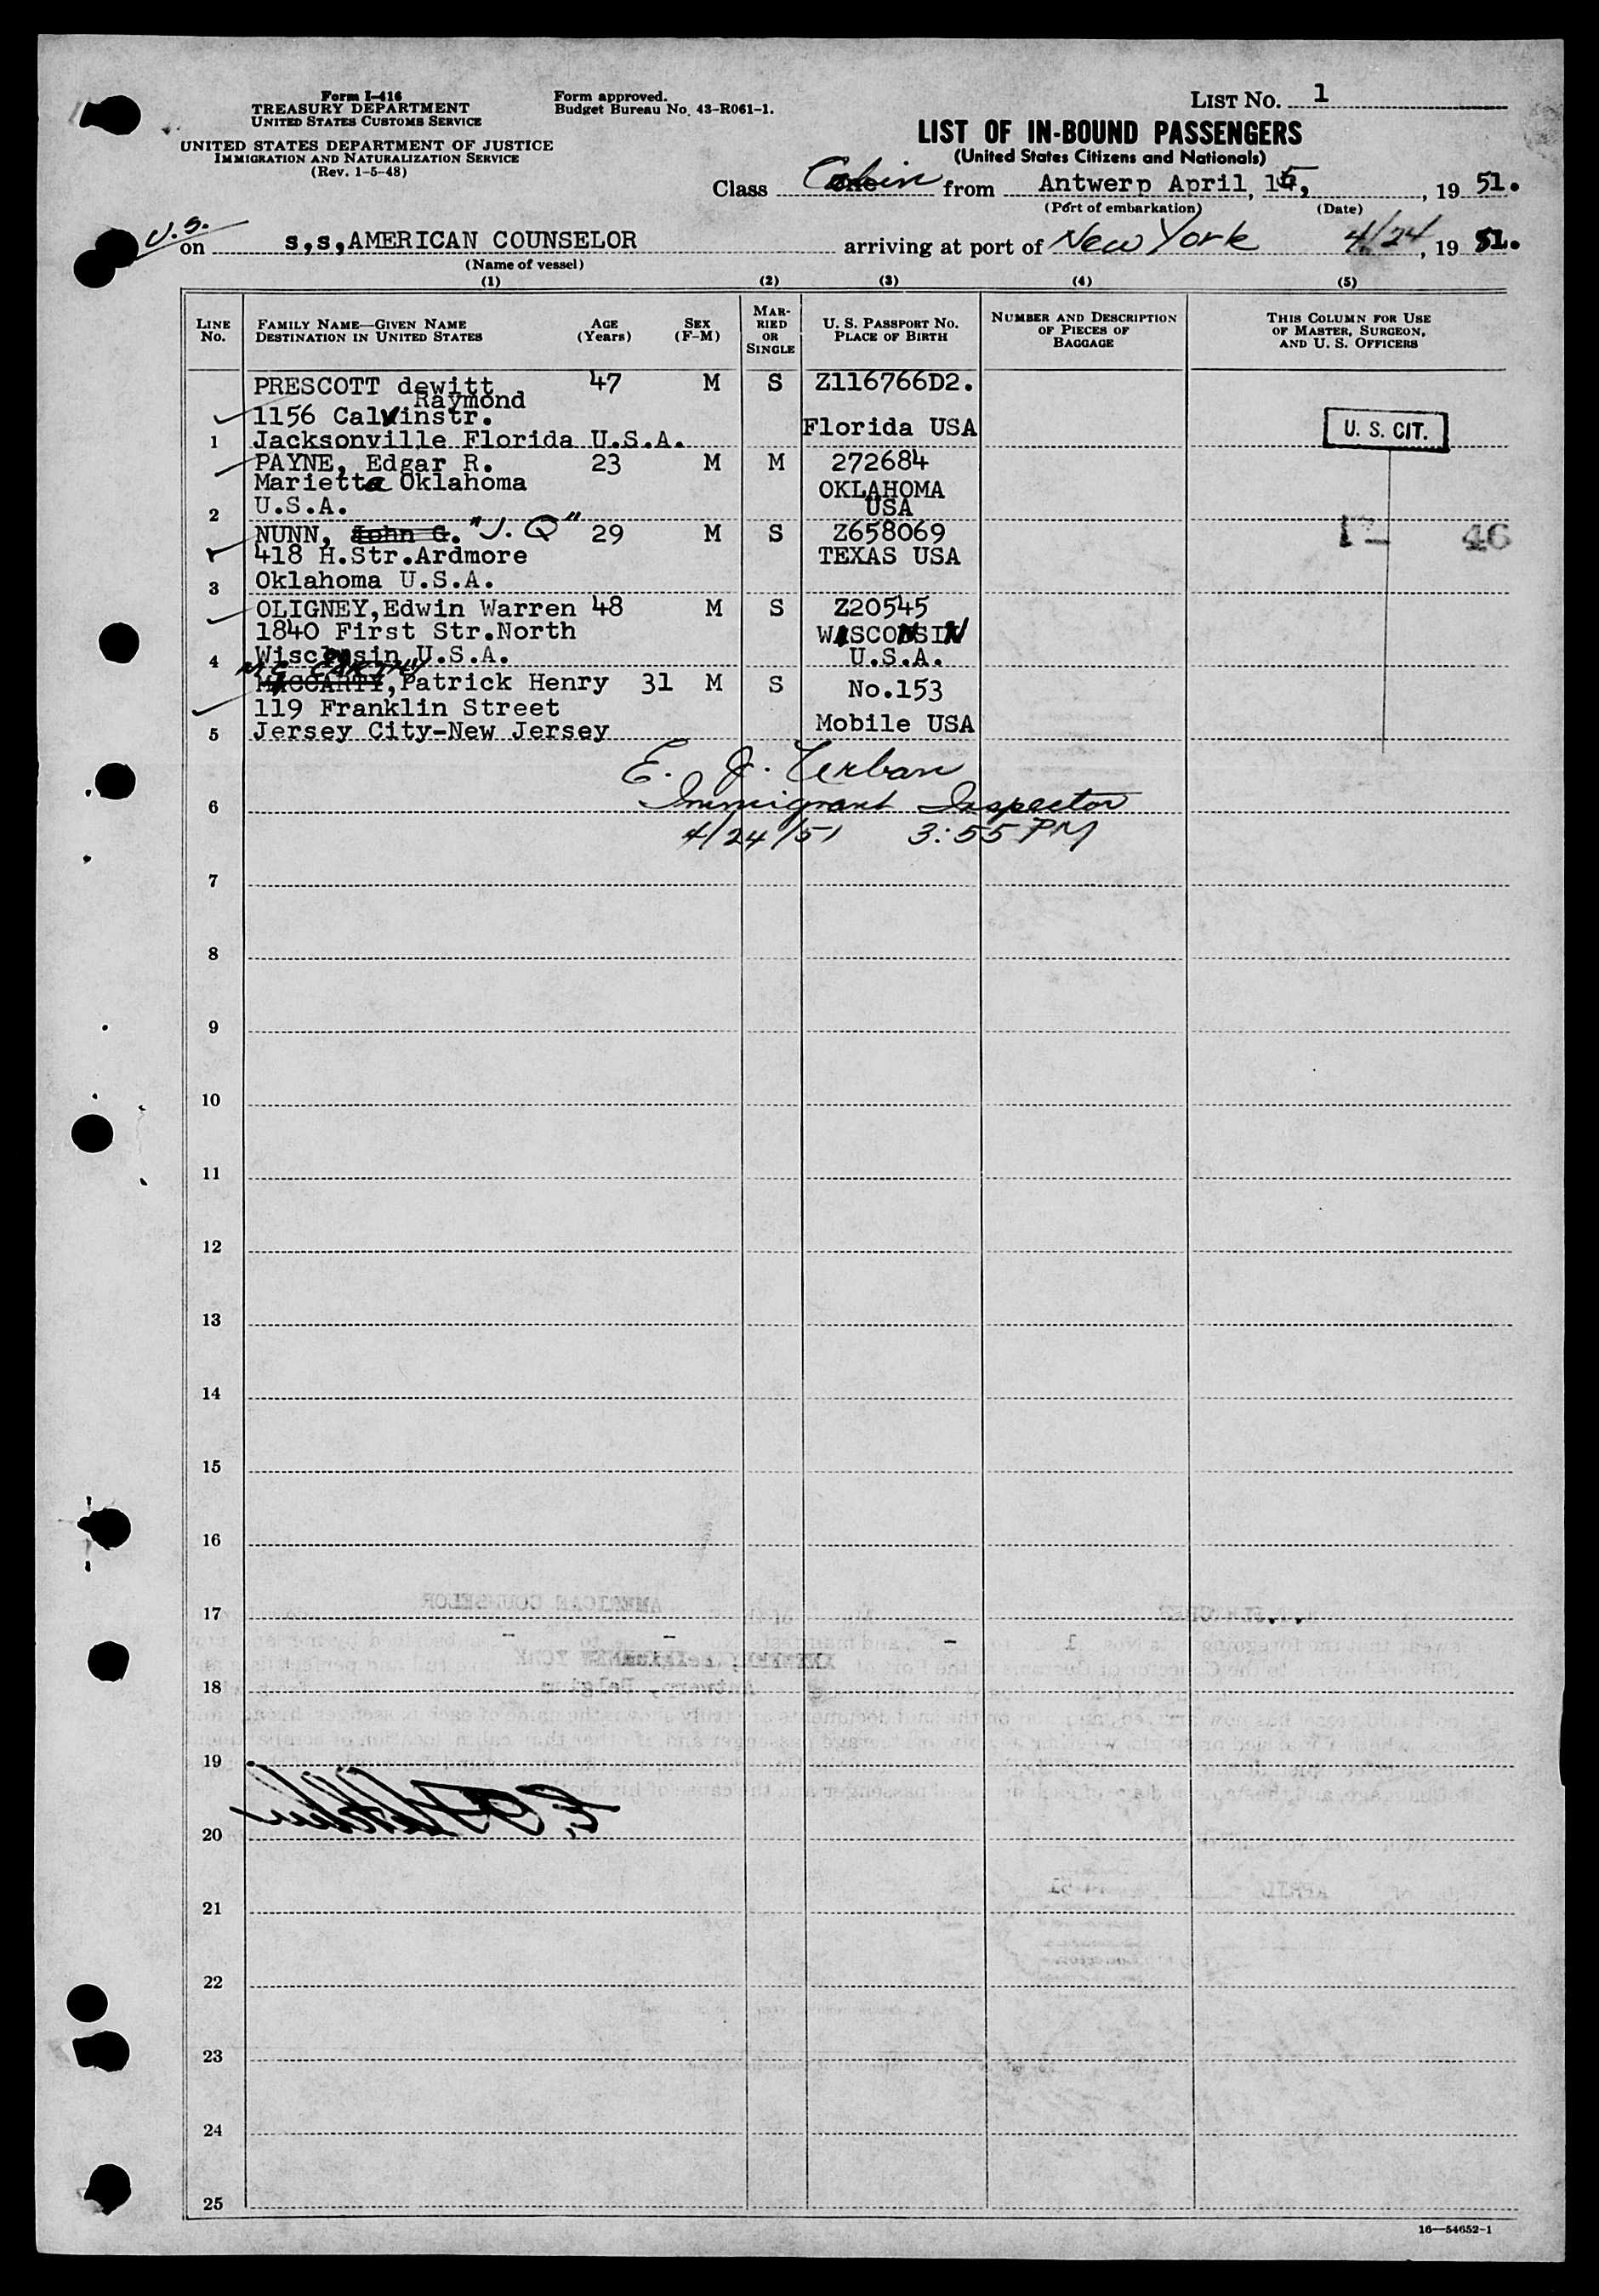 Form I-416
TREASURY DEPARTMENT
UNITED STATES CUSTOMS SERVICE
UNITED STATES DEPARTMENT OF JUSTICE
IMMIGRATION AND NATURALIZATION SERVICE
(Rev. 1-5-48)
Form approved.
Budget Bureau No. 43-R061-1.
LIST No. 1
LIST OF IN-BOUND PASSENGERS
(United States Citizens and Nationals)
Class Cabin from Antwerp April, 15, , 19 51.
(Port of embarkation) (Date)
U.S.
on s,s,AMERICAN COUNSELOR arriving at port of New York 4/24, 19 51.
(Name of vessel)
(1) (2) (3) (4) (5)
LINE No. FAMILY NAME—GIVEN NAME DESTINATION IN UNITED STATES AGE (Years) SEX (F-M) MARRIED OR SINGLE U. S. PASSPORT NO. PLACE OF BIRTH NUMBER AND DESCRIPTION OF PIECES OF BAGGAGE THIS COLUMN FOR USE OF MASTER, SURGEON, AND U. S. OFFICERS
PRESCOTT dewitt 47 M S Z116766D2.
Raymond
1156 Calvinstr. Florida USA U. S. CIT.
1 Jacksonville Florida U.S.A.
PAYNE, Edgar R. 23 M M 272684
Marietta Oklahoma OKLAHOMA
2 U.S.A. USA
NUNN, John G. "J. Q" 29 M S Z658069 46
418 H.Str.Ardmore TEXAS USA
3 Oklahoma U.S.A.
OLIGNEY,Edwin Warren 48 M S Z20545
1840 First Str.North WISCONSIN
4 Wisconsin U.S.A. U.S.A.
Mc CARTHY
MACCARTY,Patrick Henry 31 M S No.153
119 Franklin Street
5 Jersey City-New Jersey Mobile USA
E. J. Terban
6 Immigrant Inspector
4/24/51 3:55 PM
7
8
9
10
11
12
13
14
15
16
17
18
19
20
21
22
23
24
25
16—54652-1